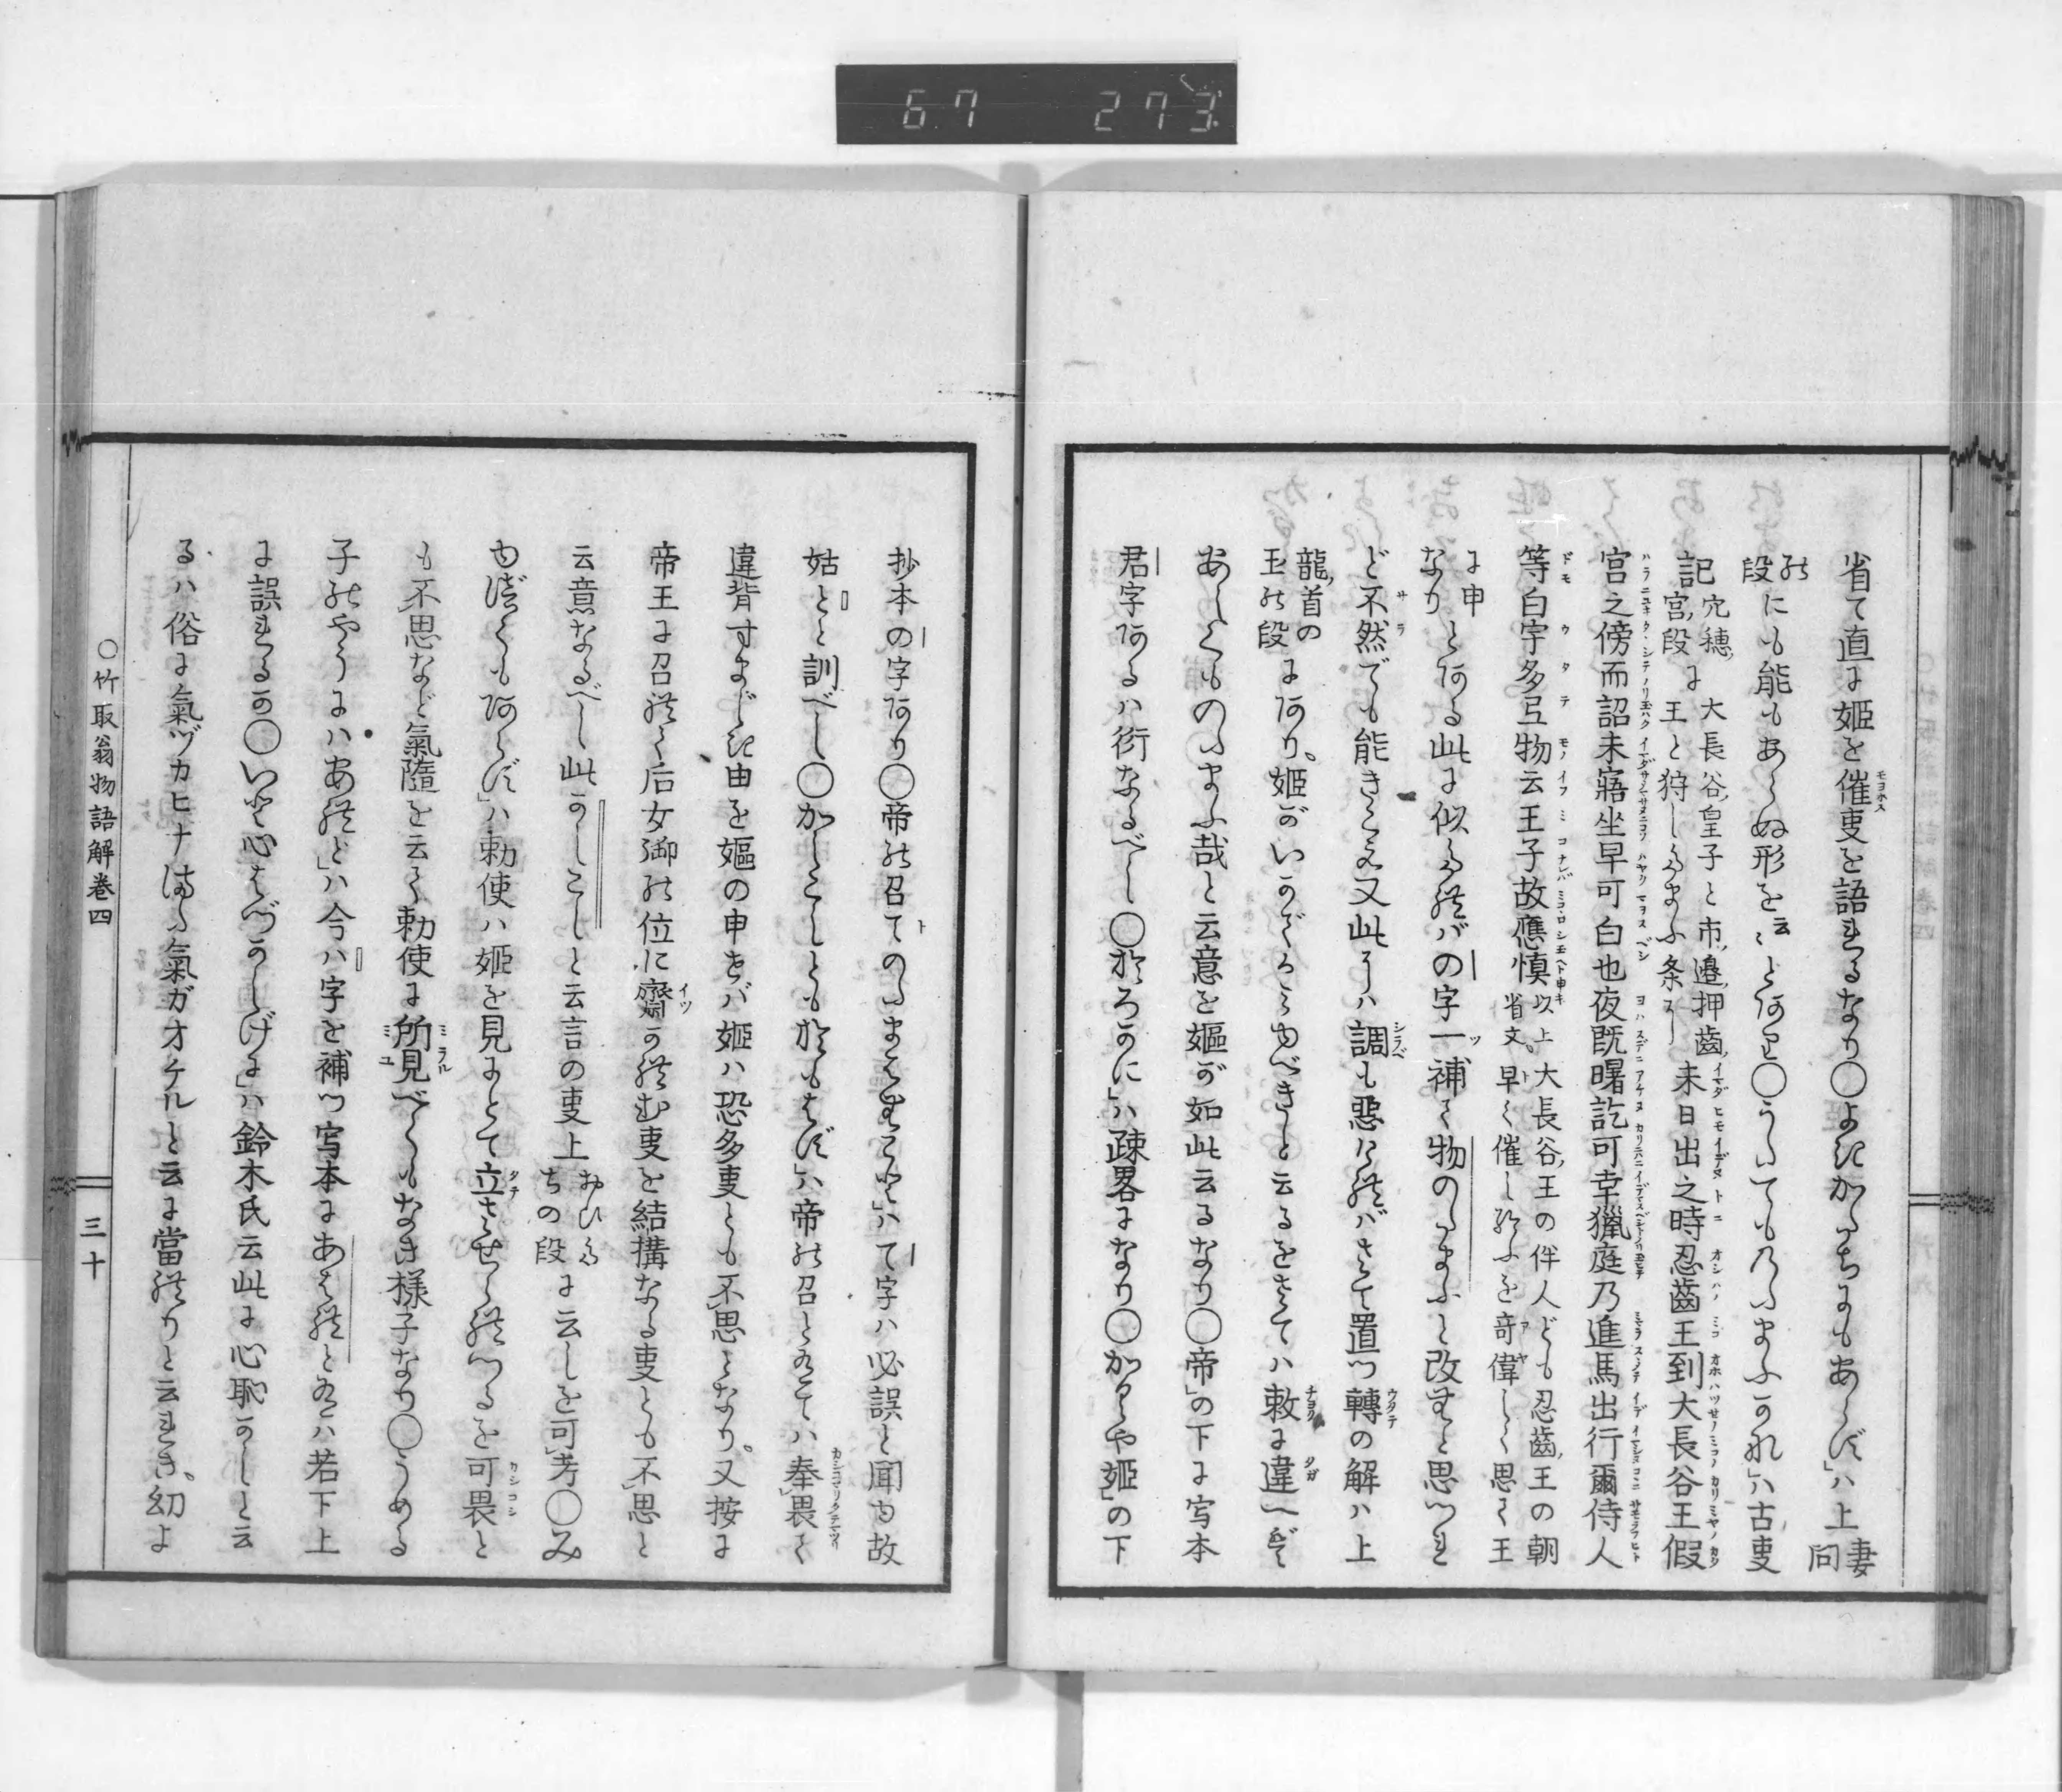 67 273
省て直に姫を催叓を語れるなり〇よきかたちにもあらず」ハ上妻問
の段にも能もあらぬ形を云〻とあり〇うたてものたまふかな」ハ古叓
記穴穂宮段に大長谷皇子と市邊押齒王と狩したまふ条に未日出之時忍齒王到大長谷王假
宮之傍而詔未寤坐早可白也夜既曙訖可幸獵庭乃進馬出行爾侍人
等白宇多弖物云王子故應慎以上省文早く催し給ふを奇偉しく思て王大長谷王の伴人ども忍齒王の朝
に申なりとある此に似たれバの字一ツ補て物のたまふと改むと思つれ
ど不然でも能きこえ又此にハ調も惡けれバさて置つ轉の解ハ上
龍首の玉の段にあり。姫がいかでかみゆべきと云るをさてハ敕に違へど
あしくものたまふ哉と云意を嫗が如此云るなり〇帝」の下に写本
君字あるハ衍なるべし〇おろかに」ハ疎畧になり〇かぐや姫」の下
抄本の字あり〇帝の召てのたまはむこと」ハて字ハ必誤と聞ゆ故
姑とと訓べし〇かしこしとも於もはず」ハ帝の召とてハ奉畏て
違背すまじき由を嫗の申せバ姫ハ恐多叓とも不思となり。又按に
帝王に召れて后女御の位に齋かれむ叓を結構なる叓とも不思と
云意なるべし此かしこしと云言の叓上おひたちの段に云しを可考〇み
ゆべくもあらず」ハ勅使ハ姫を見にとて立させられつるを可畏と
も不思など氣隨を云て勅使に所見べくもなき様子なり〇うめる
子のやうにハあれど」ハ今ハ字を補つ写本にあはれとあるハ若下上
に誤れるか〇いと心はづかしげに」ハ鈴木氏云此に心恥かしと云
るハ俗に氣ヅカヒナ又氣ガオケルと云に當れりと云れき、幼よ
〇竹取翁物語解巻四
三十